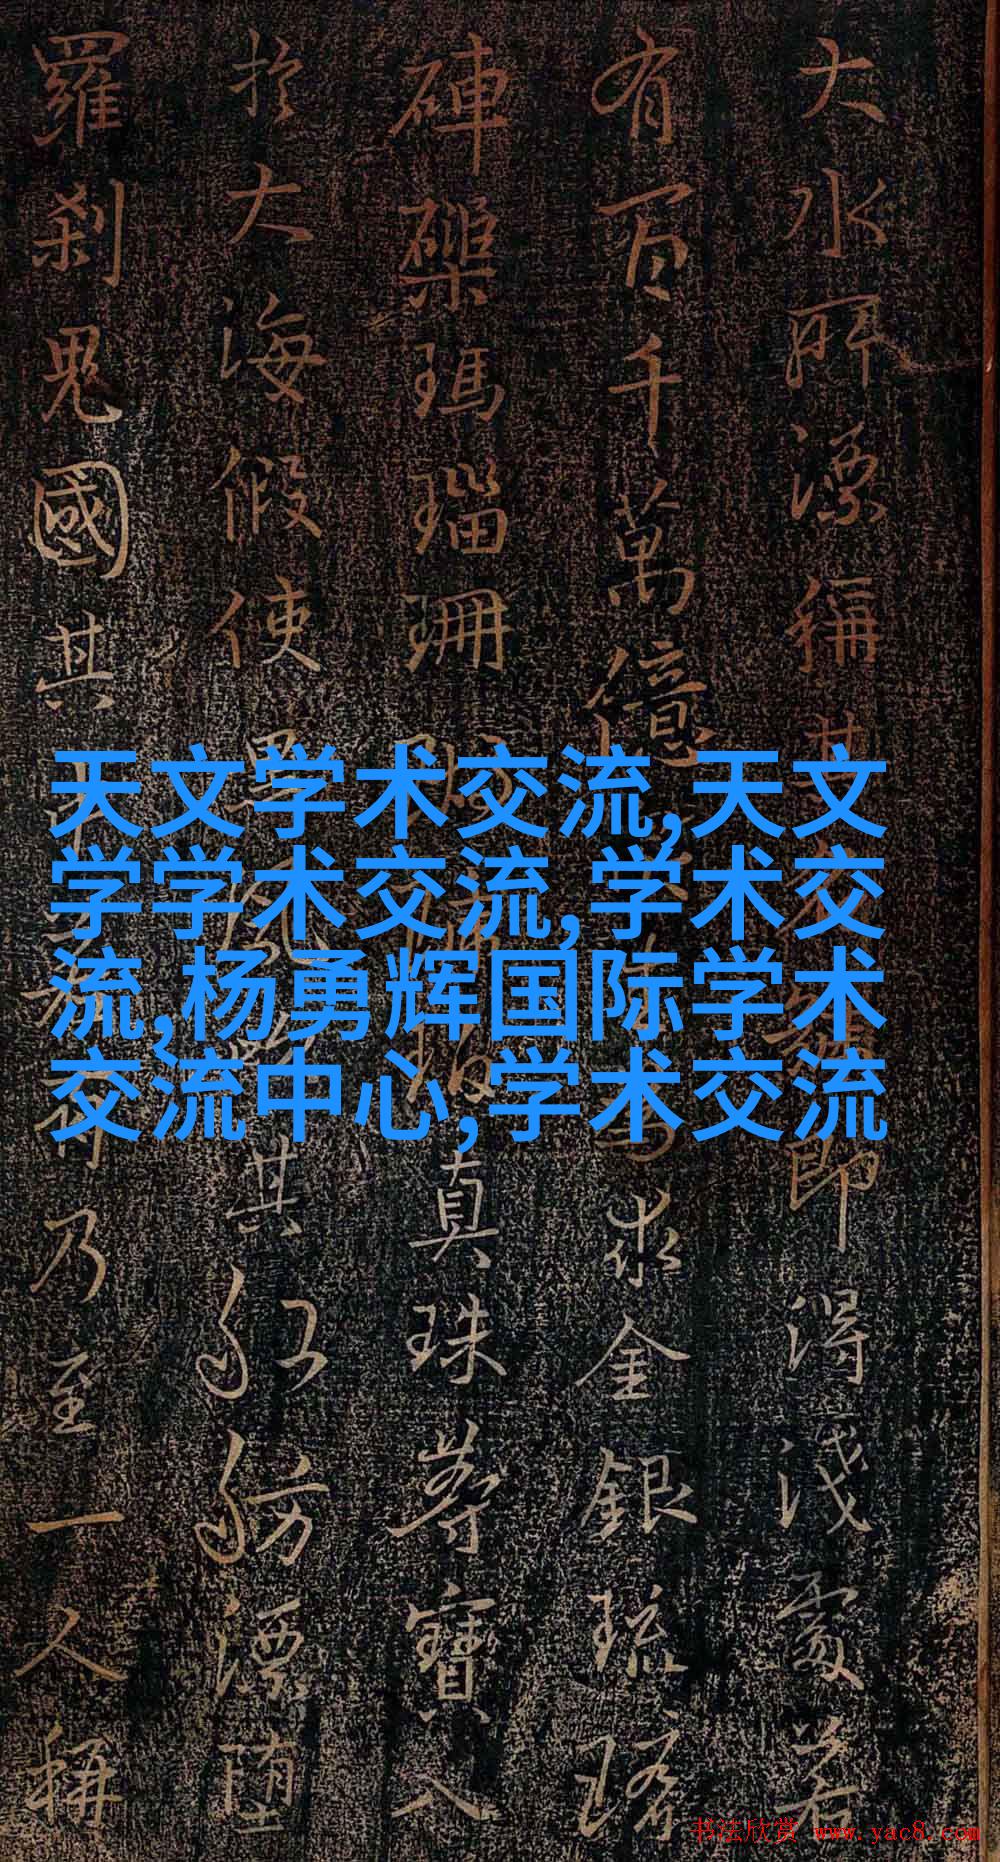 大水所漂稱其即得淺處若
有百千萬億求金銀琉璃
硨磲瑪瑙珊瑚真珠等寶入
於大海假使黑風其船舫漂墮
羅刹鬼國其中若有乃至一人稱
天文学术交流,天文
学学术交流,学术交
流,杨勇辉国际学术
交流中心,学术交流
书法欣赏 www.yac8.com